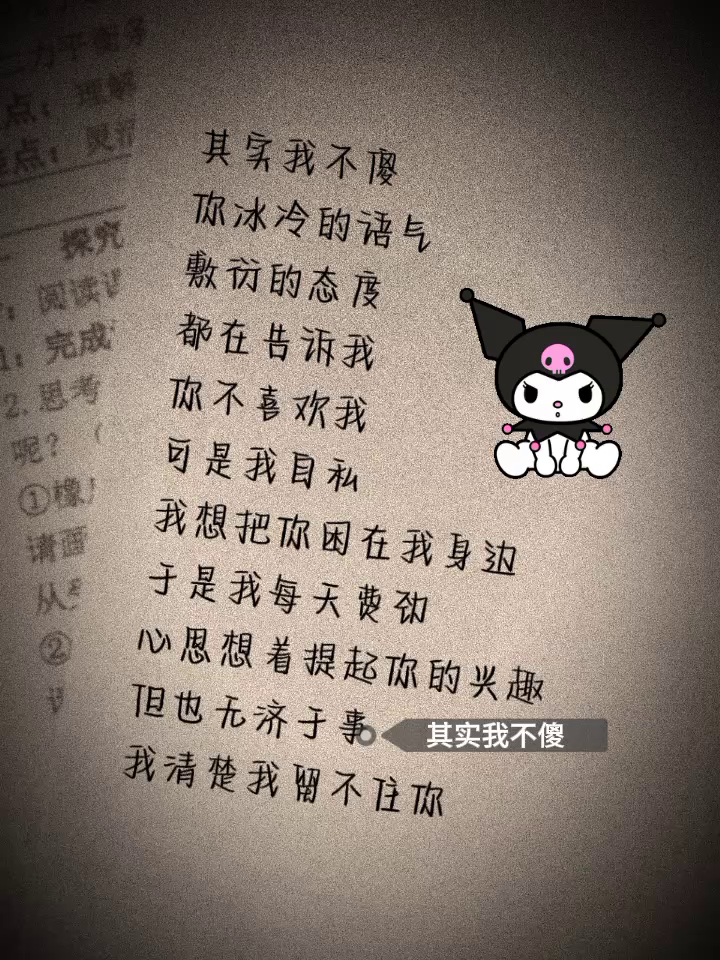 二力平衡条
点：理解
点：灵活
探究
：阅读课
1：完成
2.思考
呢？（
①橡
请画
从
②
其实我不傻
你冰冷的语气
敷衍的态度
都在告诉我
你不喜欢我
可是我自私
我想把你困在我身边
于是我每天费劲
心思想着提起你的兴趣
但也无济于事
我清楚我留不住你
其实我不傻